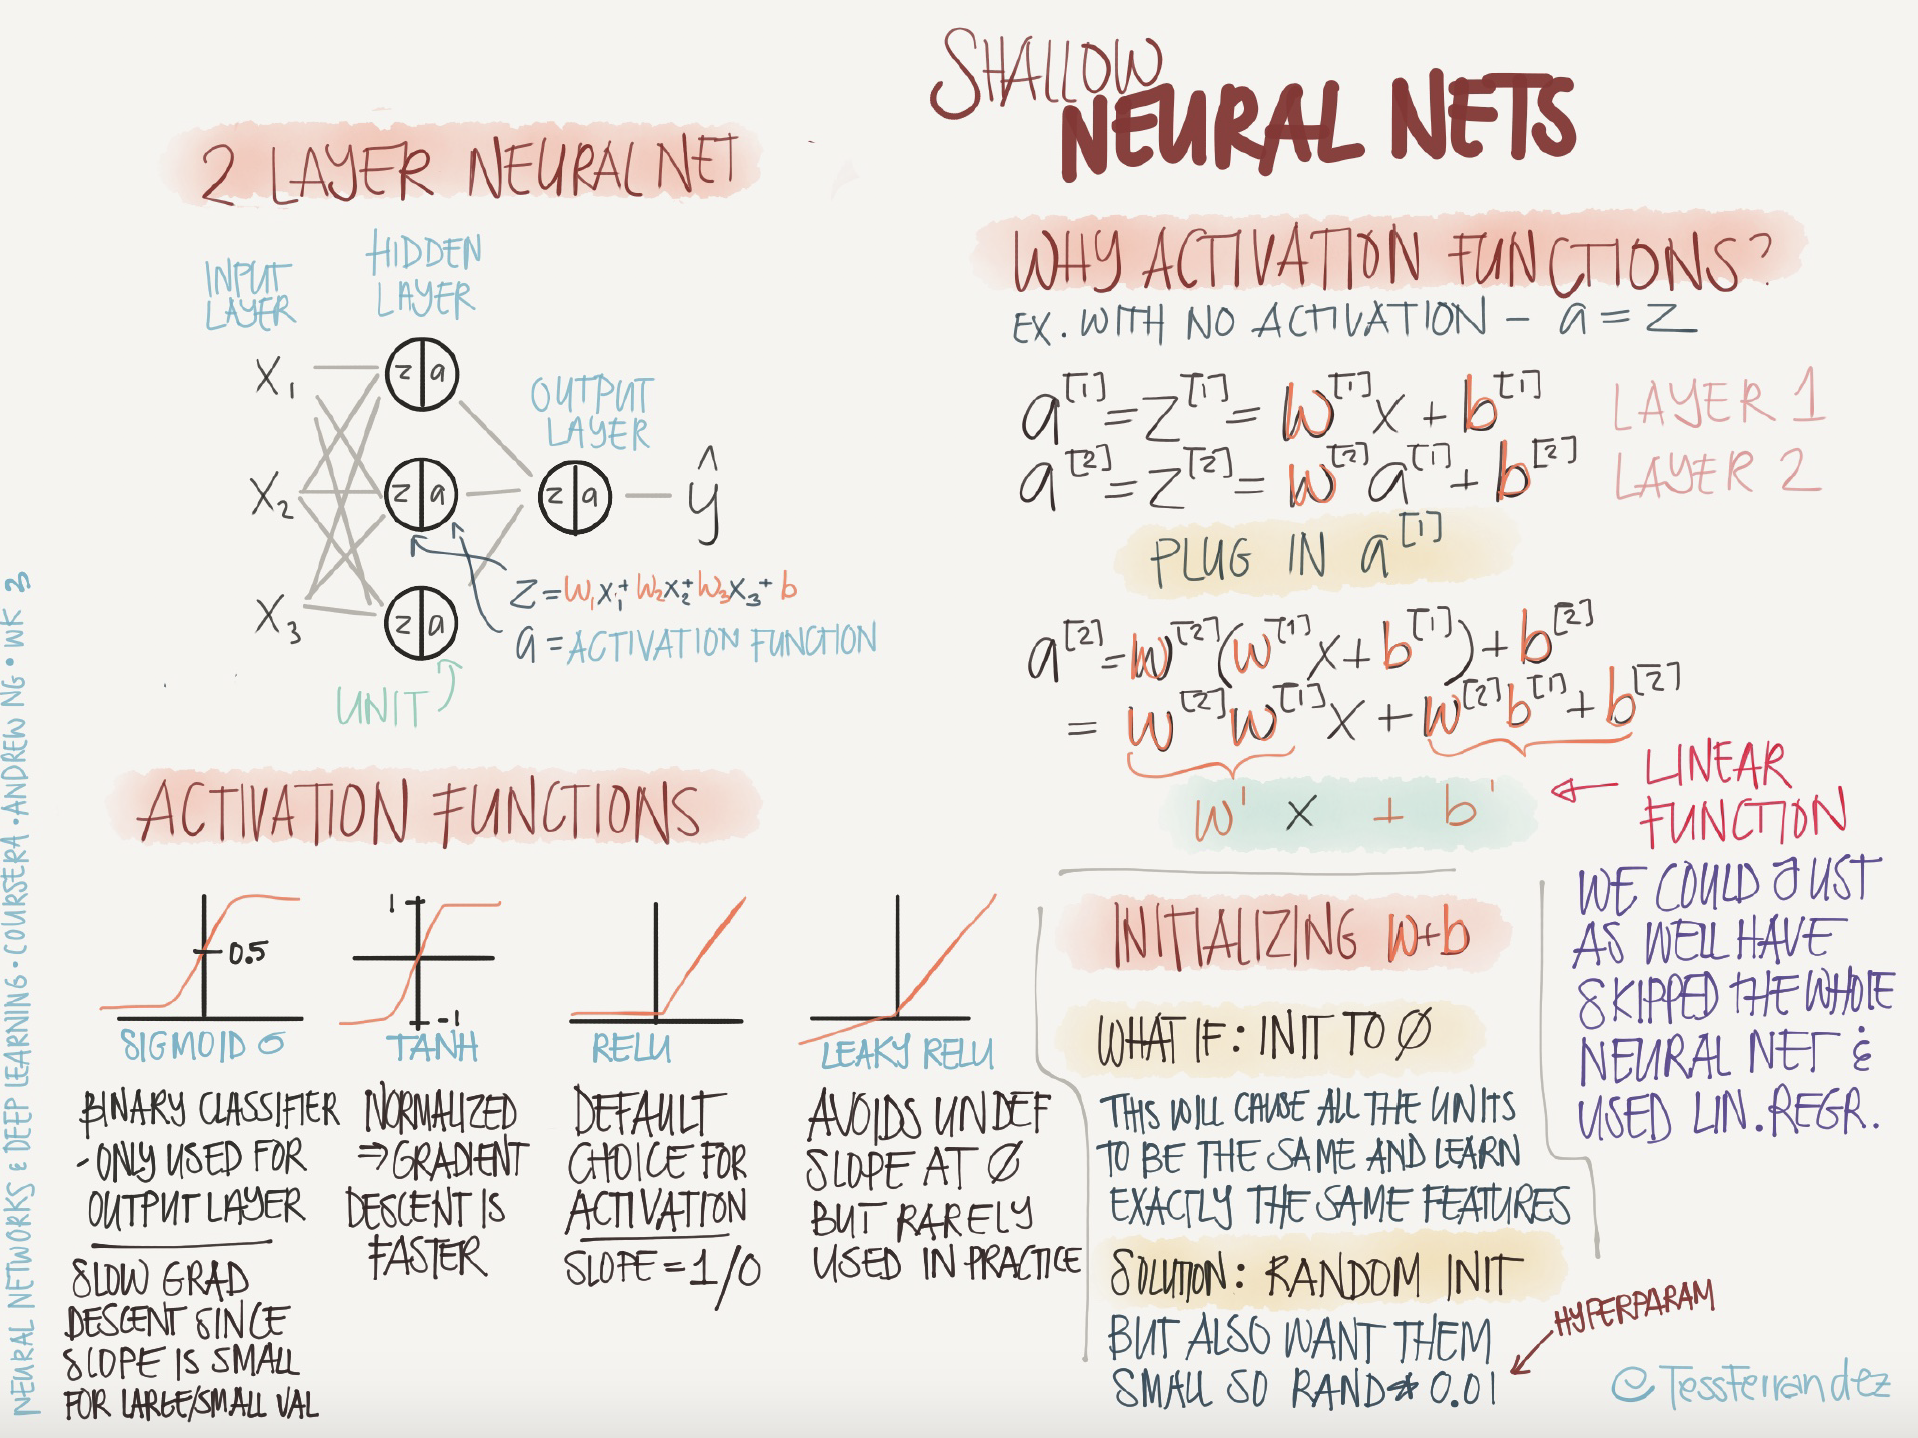 SHALLOW
NEURAL NETS
2 LAYER NEURAL NET
INPUT
LAYER
HIDDEN
LAYER
OUTPUT
LAYER
x₁
x₂
x₃
z | a
z | a
z | a
z | a
ŷ
z = w₁x₁ + w₂x₂ + w₃x₃ + b
a = ACTIVATION FUNCTION
UNIT
ACTIVATION FUNCTIONS
0.5
SIGMOID σ
BINARY CLASSIFIER
- ONLY USED FOR
OUTPUT LAYER
SLOW GRAD
DESCENT SINCE
SLOPE IS SMALL
FOR LARGE/SMALL VAL
1
-1
TANH
NORMALIZED
⇒ GRADIENT
DESCENT IS
FASTER
RELU
DEFAULT
CHOICE FOR
ACTIVATION
SLOPE = 1/0
LEAKY RELU
AVOIDS UNDEF
SLOPE AT Ø
BUT RARELY
USED IN PRACTICE
WHY ACTIVATION FUNCTIONS?
EX. WITH NO ACTIVATION - a = z
a^[1] = z^[1] = w^[1] x + b^[1] LAYER 1
a^[2] = z^[2] = w^[2] a^[1] + b^[2] LAYER 2
PLUG IN a^[1]
a^[2] = w^[2] (w^[1] x + b^[1]) + b^[2]
= w^[2] w^[1] x + w^[2] b^[1] + b^[2]
w' x + b'
LINEAR
FUNCTION
WE COULD JUST
AS WELL HAVE
SKIPPED THE WHOLE
NEURAL NET &
USED LIN. REGR.
INITIALIZING w+b
WHAT IF: INIT TO Ø
THIS WILL CAUSE ALL THE UNITS
TO BE THE SAME AND LEARN
EXACTLY THE SAME FEATURES
SOLUTION: RANDOM INIT
BUT ALSO WANT THEM
SMALL SO RAND * 0.01
HYPERPARAM
@TessFerrandez
NEURAL NETWORKS & DEEP LEARNING • COURSERA • ANDREW NG • WK 3